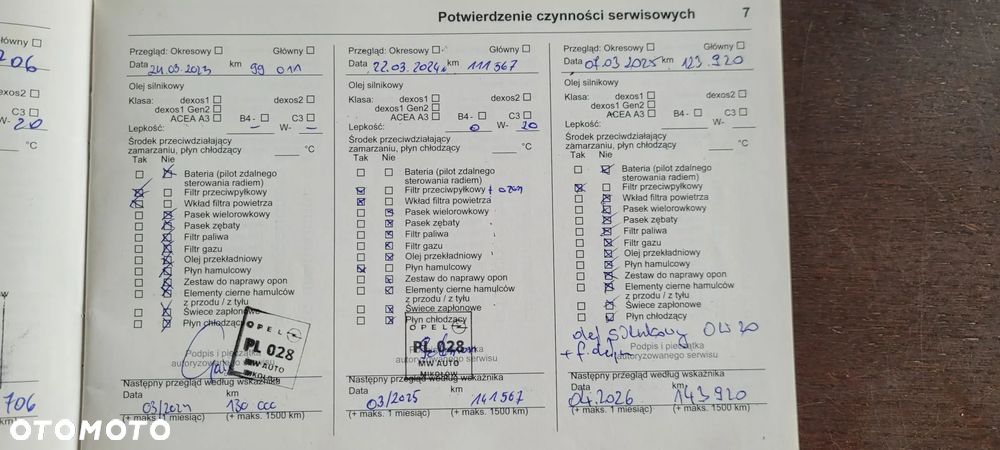 Potwierdzenie czynności serwisowych 7
główny
206
dexos2
C3
W- 20
°C
706
km
Przegląd: Okresowy Główny
Data 24.03.2023 km 99 011
Olej silnikowy
Klasa: dexos1 dexos2
dexos1 Gen2
ACEA A3 B4 - C3
Lepkość: – W- –
Środek przeciwdziałający
zamarzaniu, płyn chłodzący °C
Tak Nie
Bateria (pilot zdalnego
sterowania radiem)
Filtr przeciwpyłkowy
Wkład filtra powietrza
Pasek wielorowkowy
Pasek zębaty
Filtr paliwa
Filtr gazu
Olej przekładniowy
Płyn hamulcowy
Zestaw do naprawy opon
Elementy cierne hamulców
z przodu / z tyłu
Świece zapłonowe
Płyn chłodzący
OPEL
PL 028
MW AUTO
MIKOŁÓW
Podpis i pieczątka
autoryzowanego serwisu
Następny przegląd według wskaźnika
Data km
03/2024 130 000
(+ maks. 1 miesiąc) (+ maks. 1500 km)
Przegląd: Okresowy Główny
Data 22.03.2024 km 111 567
Olej silnikowy
Klasa: dexos1 dexos2
dexos1 Gen2
ACEA A3 B4 - C3
Lepkość: 0 W- 20
Środek przeciwdziałający
zamarzaniu, płyn chłodzący °C
Tak Nie
Bateria (pilot zdalnego
sterowania radiem)
Filtr przeciwpyłkowy + ozon
Wkład filtra powietrza
Pasek wielorowkowy
Pasek zębaty
Filtr paliwa
Filtr gazu
Olej przekładniowy
Płyn hamulcowy
Zestaw do naprawy opon
Elementy cierne hamulców
z przodu / z tyłu
Świece zapłonowe
Płyn chłodzący
OPEL
PL 028
MW AUTO
MIKOŁÓW
Podpis i pieczątka
autoryzowanego serwisu
Następny przegląd według wskaźnika
Data km
03/2025 141 567
(+ maks. 1 miesiąc) (+ maks. 1500 km)
Przegląd: Okresowy Główny
Data 07.03 2025 km 123 920
Olej silnikowy
Klasa: dexos1 dexos2
dexos1 Gen2
ACEA A3 B4 - C3
Lepkość: W-
Środek przeciwdziałający
zamarzaniu, płyn chłodzący °C
Tak Nie
Bateria (pilot zdalnego
sterowania radiem)
Filtr przeciwpyłkowy
Wkład filtra powietrza
Pasek wielorowkowy
Pasek zębaty
Filtr paliwa
Filtr gazu
Olej przekładniowy
Płyn hamulcowy
Zestaw do naprawy opon
Elementy cierne hamulców
z przodu / z tyłu
Świece zapłonowe
Płyn chłodzący
olej silnikowy 0W20
Podpis i pieczątka
+ f. oleju autoryzowanego serwisu
Następny przegląd według wskaźnika
Data km
04.2026 143 920
(+ maks. 1 miesiąc) (+ maks. 1500 km)
OTOMOTO